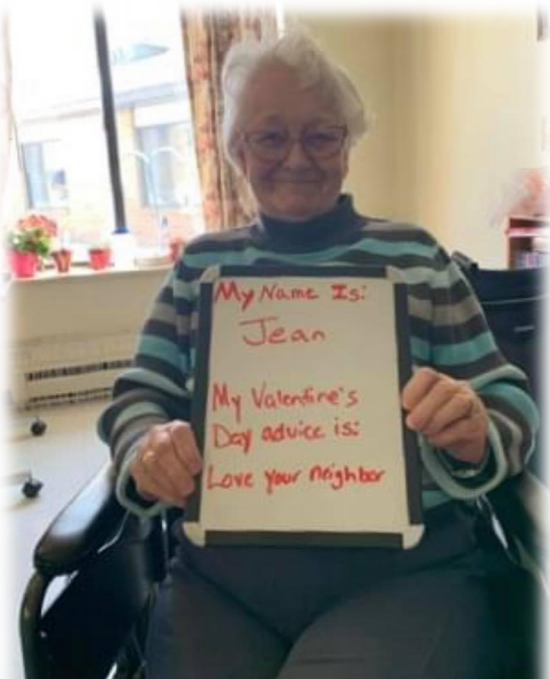 My Name Is:
Jean
My Valentine's
Day advice is:
Love your neighbor